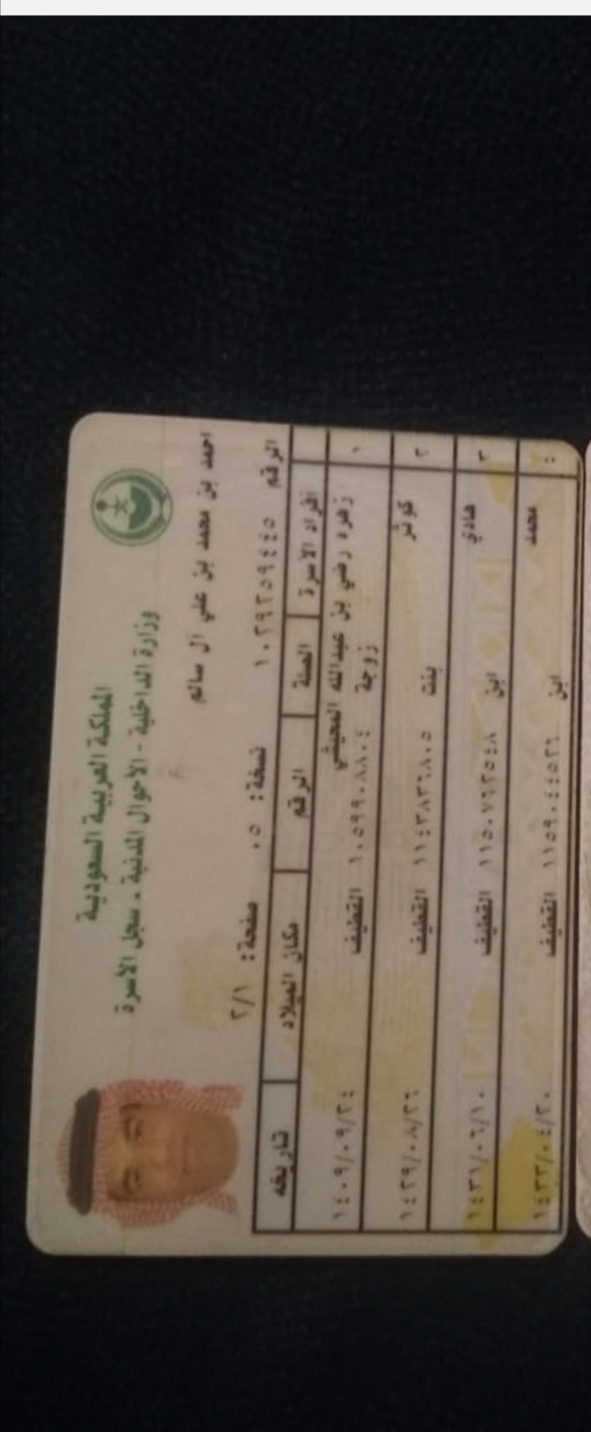 المملكة العربية السعودية
وزارة الداخلية - الأحوال المدنية - سجل الأسرة
احمد بن محمد بن علي ال سالم
الرقم ١٠٢٩٢٥٩٤٤٥ نسخة: ٠٥ صفحة: ٢/١
أفراد الأسرة الصلة الرقم مكان الميلاد تاريخه
١ زهره رضي بن عبدالله المحيشي زوجة ١٠٥٩٩٠٨٨٠٤ القطيف ١٤٠٩/٠٩/٢٤
٢ كوثر بنت ١١٤٣٨٣٦٨٠٥ القطيف ١٤٢٩/٠٨/٢٦
٣ هادي ابن ١١٥٠٧٦٢٥٤٨ القطيف ١٤٣١/٠٦/١٠
٤ محمد ابن ١١٥٩٠٤٤٥٢٦ القطيف ١٤٣٣/٠٤/٢٠